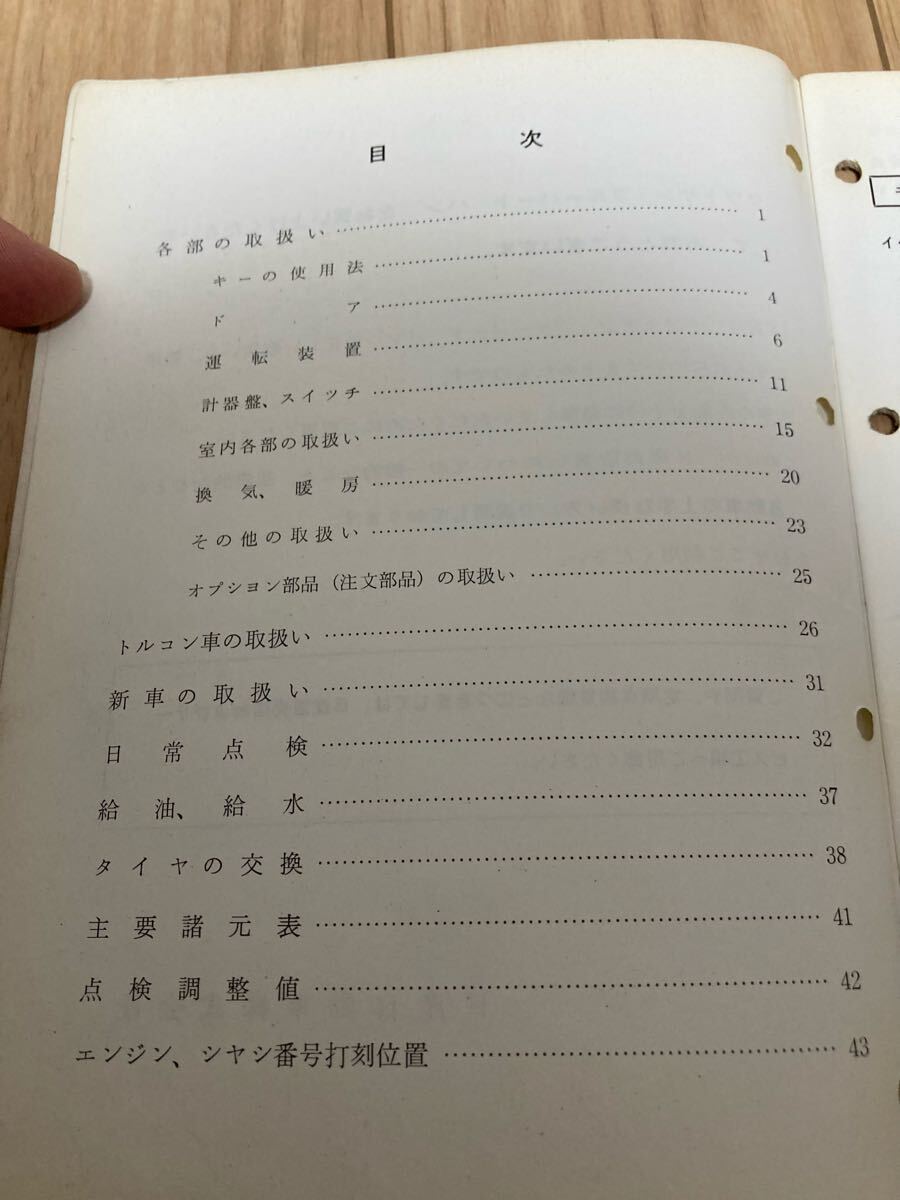 目次
各部の取扱い…………………………………………1
キーの使用法…………………………………………1
ドア…………………………………………4
運転装置…………………………………………6
計器盤、スイッチ…………………………………………11
室内各部の取扱い…………………………………………15
換気、暖房…………………………………………20
その他の取扱い…………………………………………23
オプション部品(注文部品)の取扱い…………………………25
トルコン車の取扱い…………………………………………26
新車の取扱い…………………………………………31
日常点検…………………………………………32
給油、給水…………………………………………37
タイヤの交換…………………………………………38
主要諸元表…………………………………………41
点検調整値…………………………………………42
エンジン、シヤシ番号打刻位置…………………………………43